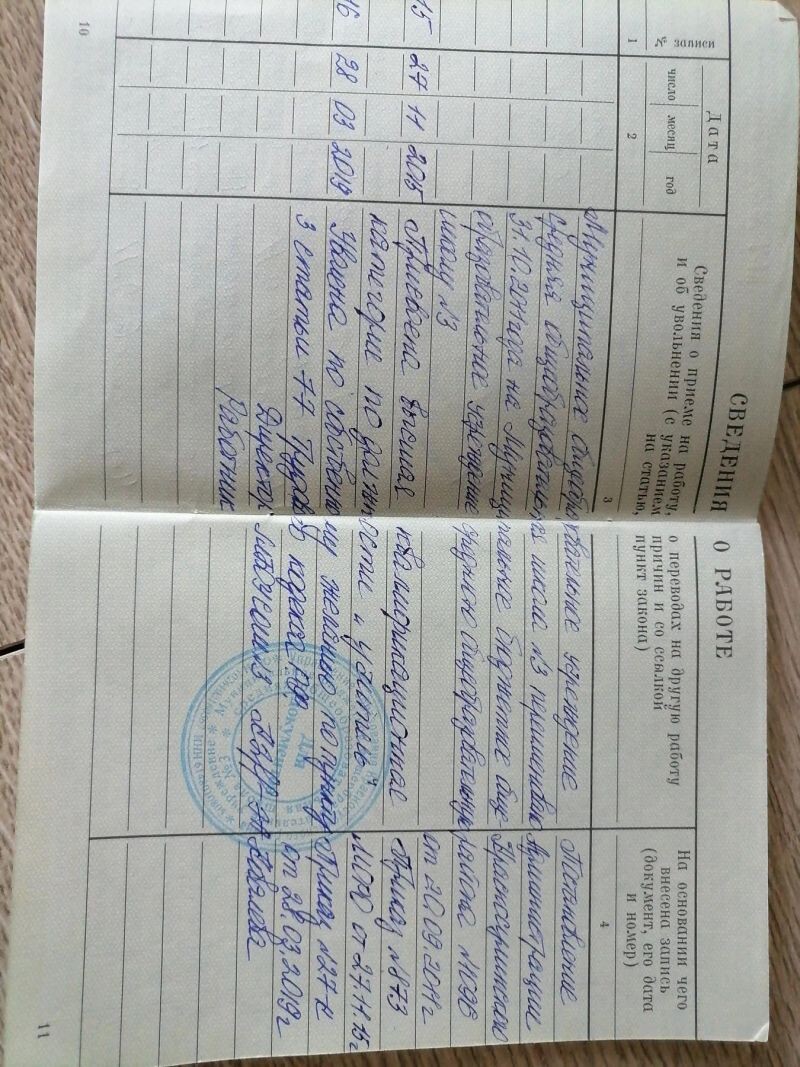 СВЕДЕНИЯ О РАБОТЕ
Дата
№ записи
число месяц год
Сведения о приеме на работу, о переводах на другую работу
и об увольнении (с указанием причин и со ссылкой
на статью, пункт закона)
На основании чего
внесена запись
(документ, его дата
и номер)
1 2 3 4
Муниципальное общеобразовательное учреждение Постановление
средняя общеобразовательная школа №3 переименована Администрации
31.10.2011 года на Муниципальное бюджетное обще
образовательное учреждение среднюю общеобразовательную района №1096
школу №3 от 20.09.2011г
15 27 11 2015 Присвоена высшая квалификационная Приказ №873
категория по должности "учитель" от 27.11.15г
16 28 03 2019 Уволена по собственному желанию по пункту Приказ №27-к
3 статьи 77 Трудового кодекса РФ от 28.03.2019г
Директор
Работник
Для
документов
10
11